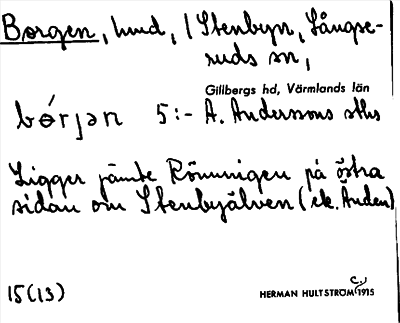 Borgen, hmd, i Stenbyn, Långse-
ruds sn,
Gillbergs hd, Värmlands län
bórjan 5:- A. Anderssons sths
Ligger jämte Römmigen på östra
sidan om Stenbyälven (ek. Anden)
15(13) HERMAN HULTSTRÖM 1915